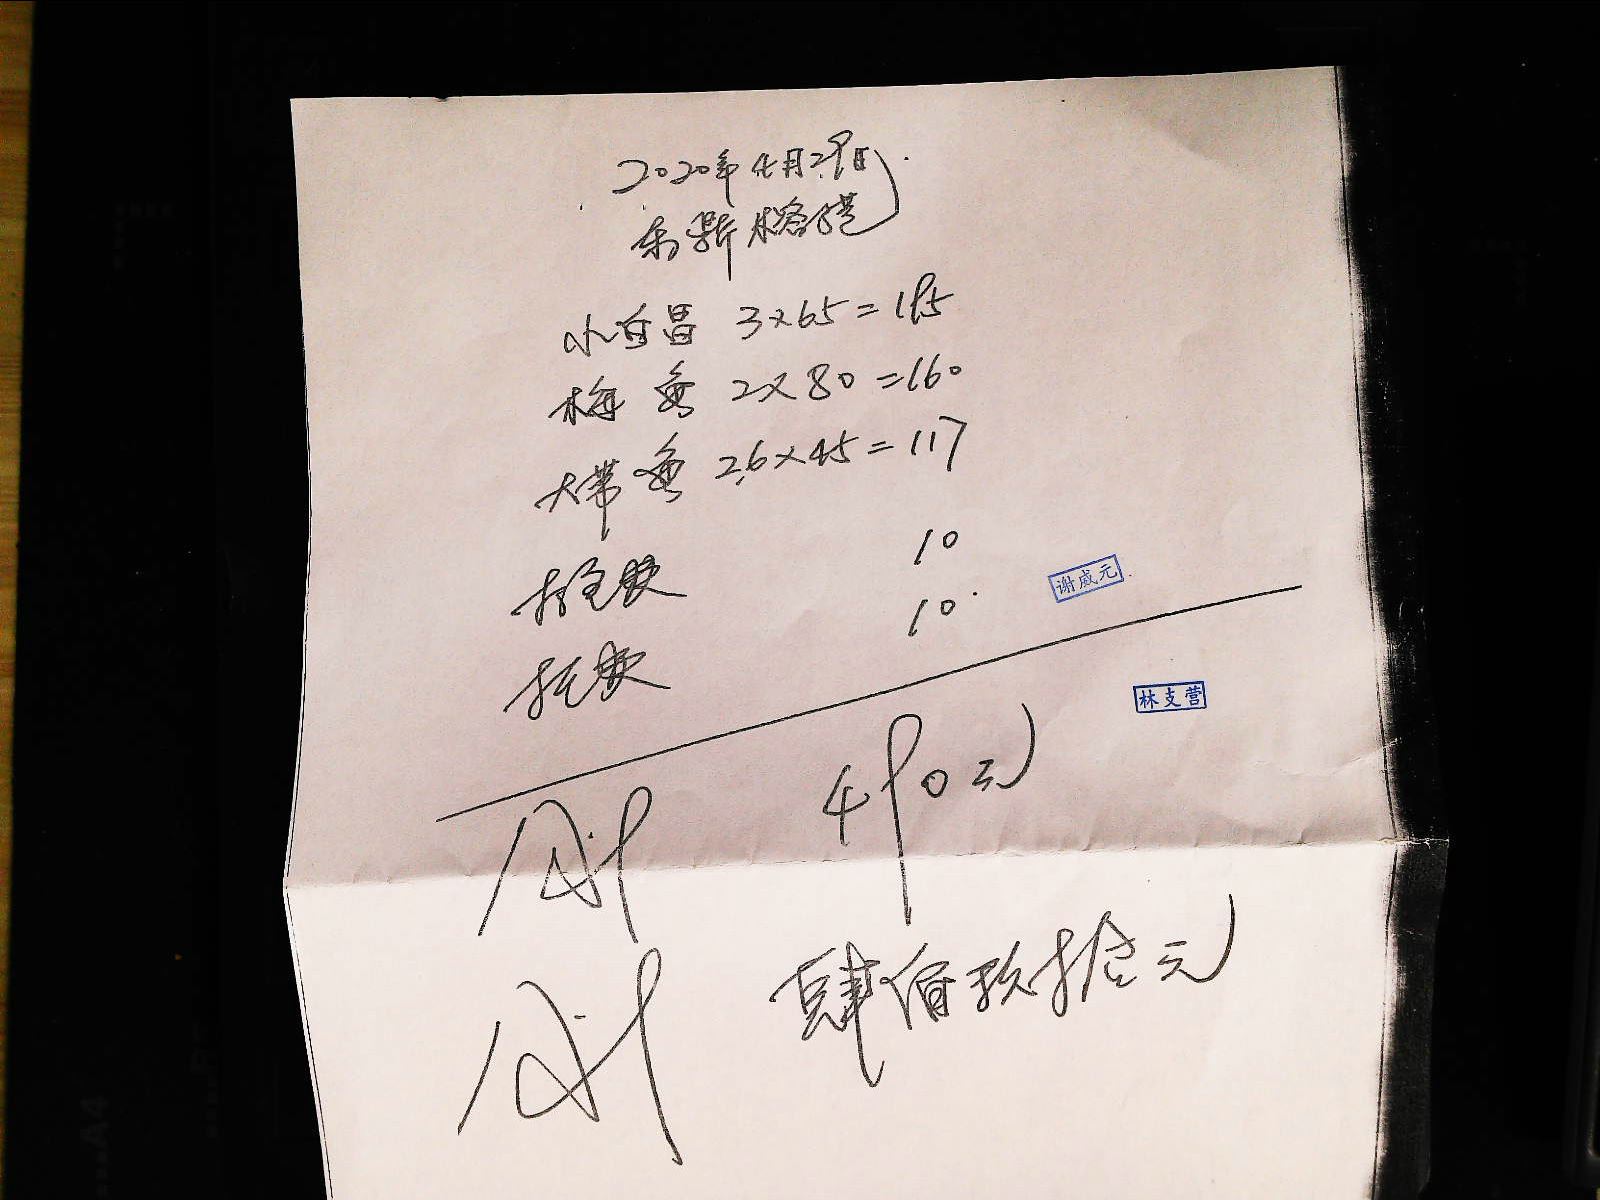 2020年4月29日
小白昌 3×65=195
梅鱼 2×80=160
大带鱼 2.6×45=117
10
谢威元
托费 10
林支营
合计 490元
合计 肆佰玖拾元